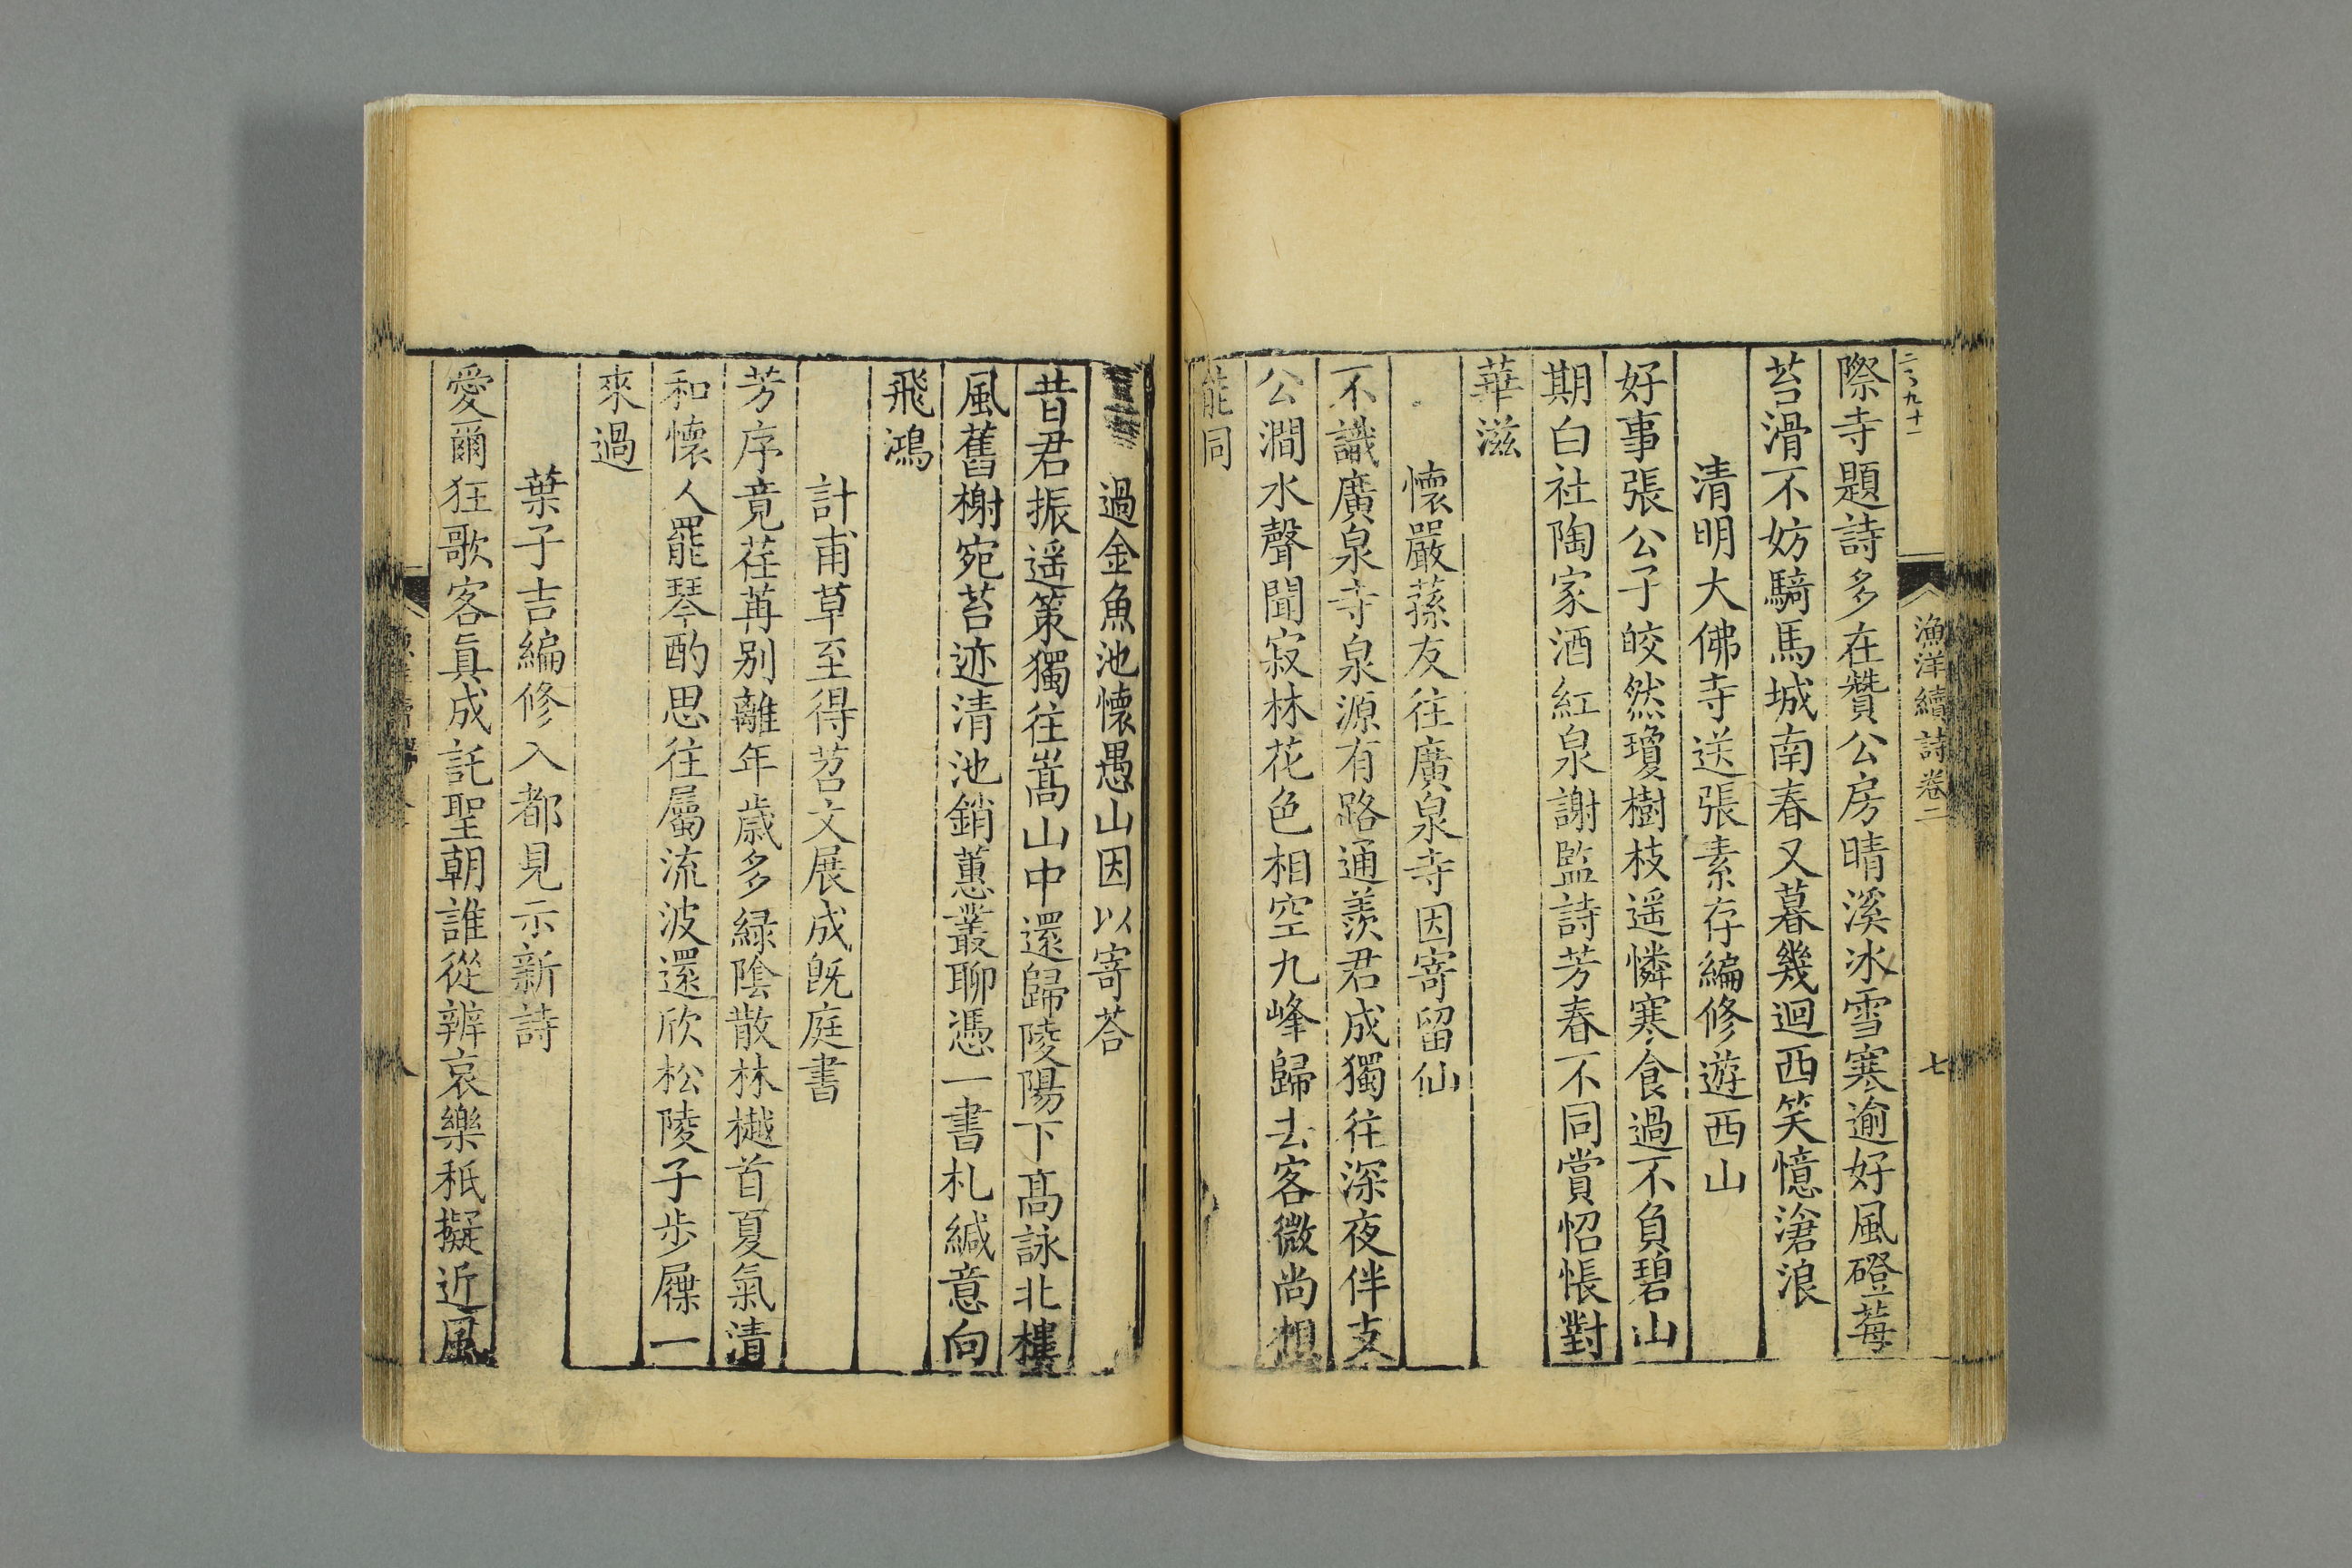 二百九十一
漁洋續詩卷二
七
際寺題詩多在贊公房晴溪冰雪寒逾好風磴莓
苔滑不妨騎馬城南春又暮幾迴西笑憶滄浪
清明大佛寺送張素存編修遊西山
好事張公子皎然瓊樹枝遥憐寒食過不負碧山
期白社陶家酒紅泉謝監詩芳春不同賞怊悵對
華滋
懷嚴蓀友往廣泉寺因寄留仙
不識廣泉寺泉源有路通羨君成獨往深夜伴支
公澗水聲聞寂林花色相空九峰歸去客微尚想
能同
過金魚池懷愚山因以寄荅
昔君振遥策獨往嵩山中還歸陵陽下髙詠北樓
風舊榭宛苔迹清池銷蕙叢聊憑一書札緘意向
飛鴻
計甫草至得苕文展成旣庭書
芳序竟荏苒别離年歲多緑陰散林樾首夏氣清
和懷人罷琴酌思往屬流波還欣松陵子步屧一
來過
葉子吉編修入都見示新詩
愛爾狂歌客眞成託聖朝誰從辨哀樂秪擬近風
八